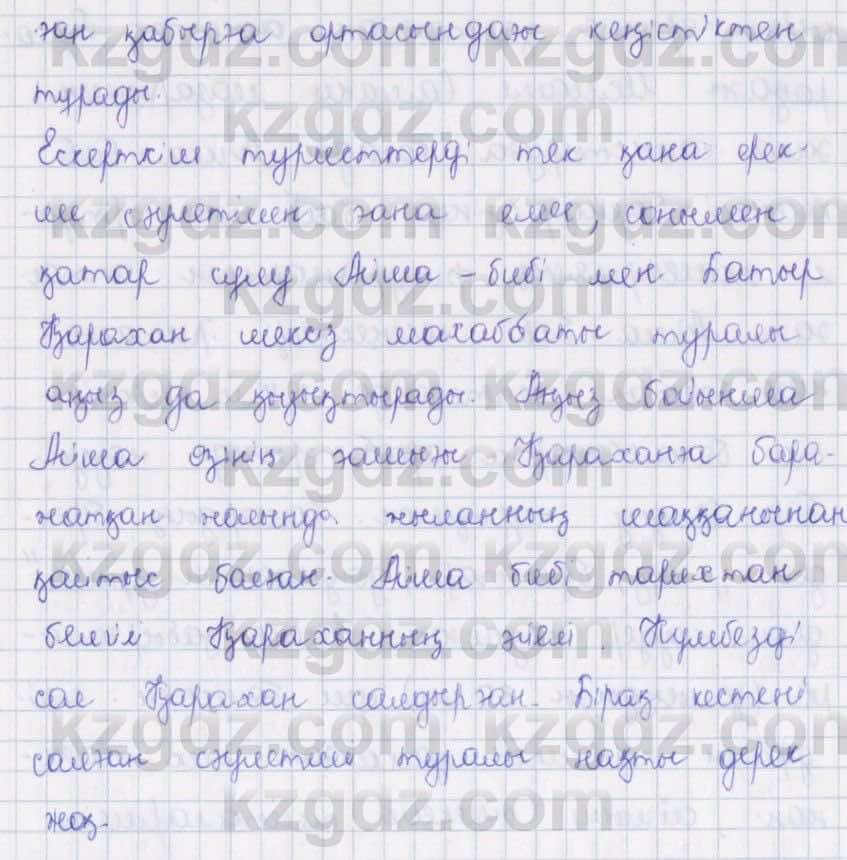 ған қабырға ортасындағы кеңістіктен
тұрады.
Ескерткіш туристтерді тек қана ерек-
ше сәулетімен ғана емес, сонымен
қатар сұлу Айша-бибі мен Батыр
Қарахан шексіз махаббаты туралы
аңыз да қызықтырады. Аңыз бойынша
Айша өзінің ғашығы Қараханға бара-
жатқан жолында жыланның шаққанынан
қайтыс болған. Айша бибі тарихтан
белгілі Қараханның әйелі. Күмбезді
сол Қарахан салдырған. Бірақ кестені
салған сәулетші туралы нақты дерек
жоқ.
kzgdz.com